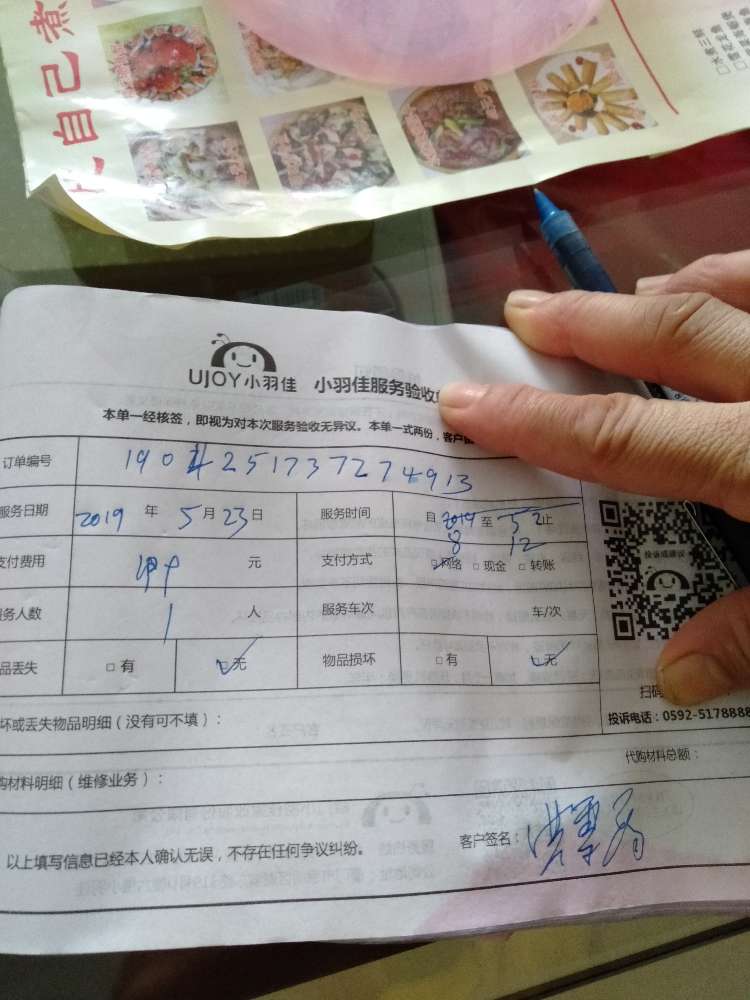 自己煮
UJOY小羽佳 小羽佳服务验收
本单一经核签，即视为对本次服务验收无异议。本单一式两份，客户
订单编号 1904251737274913
服务日期 2019 年 5 月 23 日 服务时间 自 2019 至 5 2 止
8 12
支付费用 元 支付方式 □网络 □现金 □转账
服务人数 1 人 服务车次 车/次
品丢失 □有 ☑无 物品损坏 □有 ☑无
投诉或建议
扫码
投诉电话：0592-5178888
坏或丢失物品明细（没有可不填）：
代购材料总额：
购材料明细（维修业务）：
以上填写信息已经本人确认无误，不存在任何争议纠纷。 客户签名：